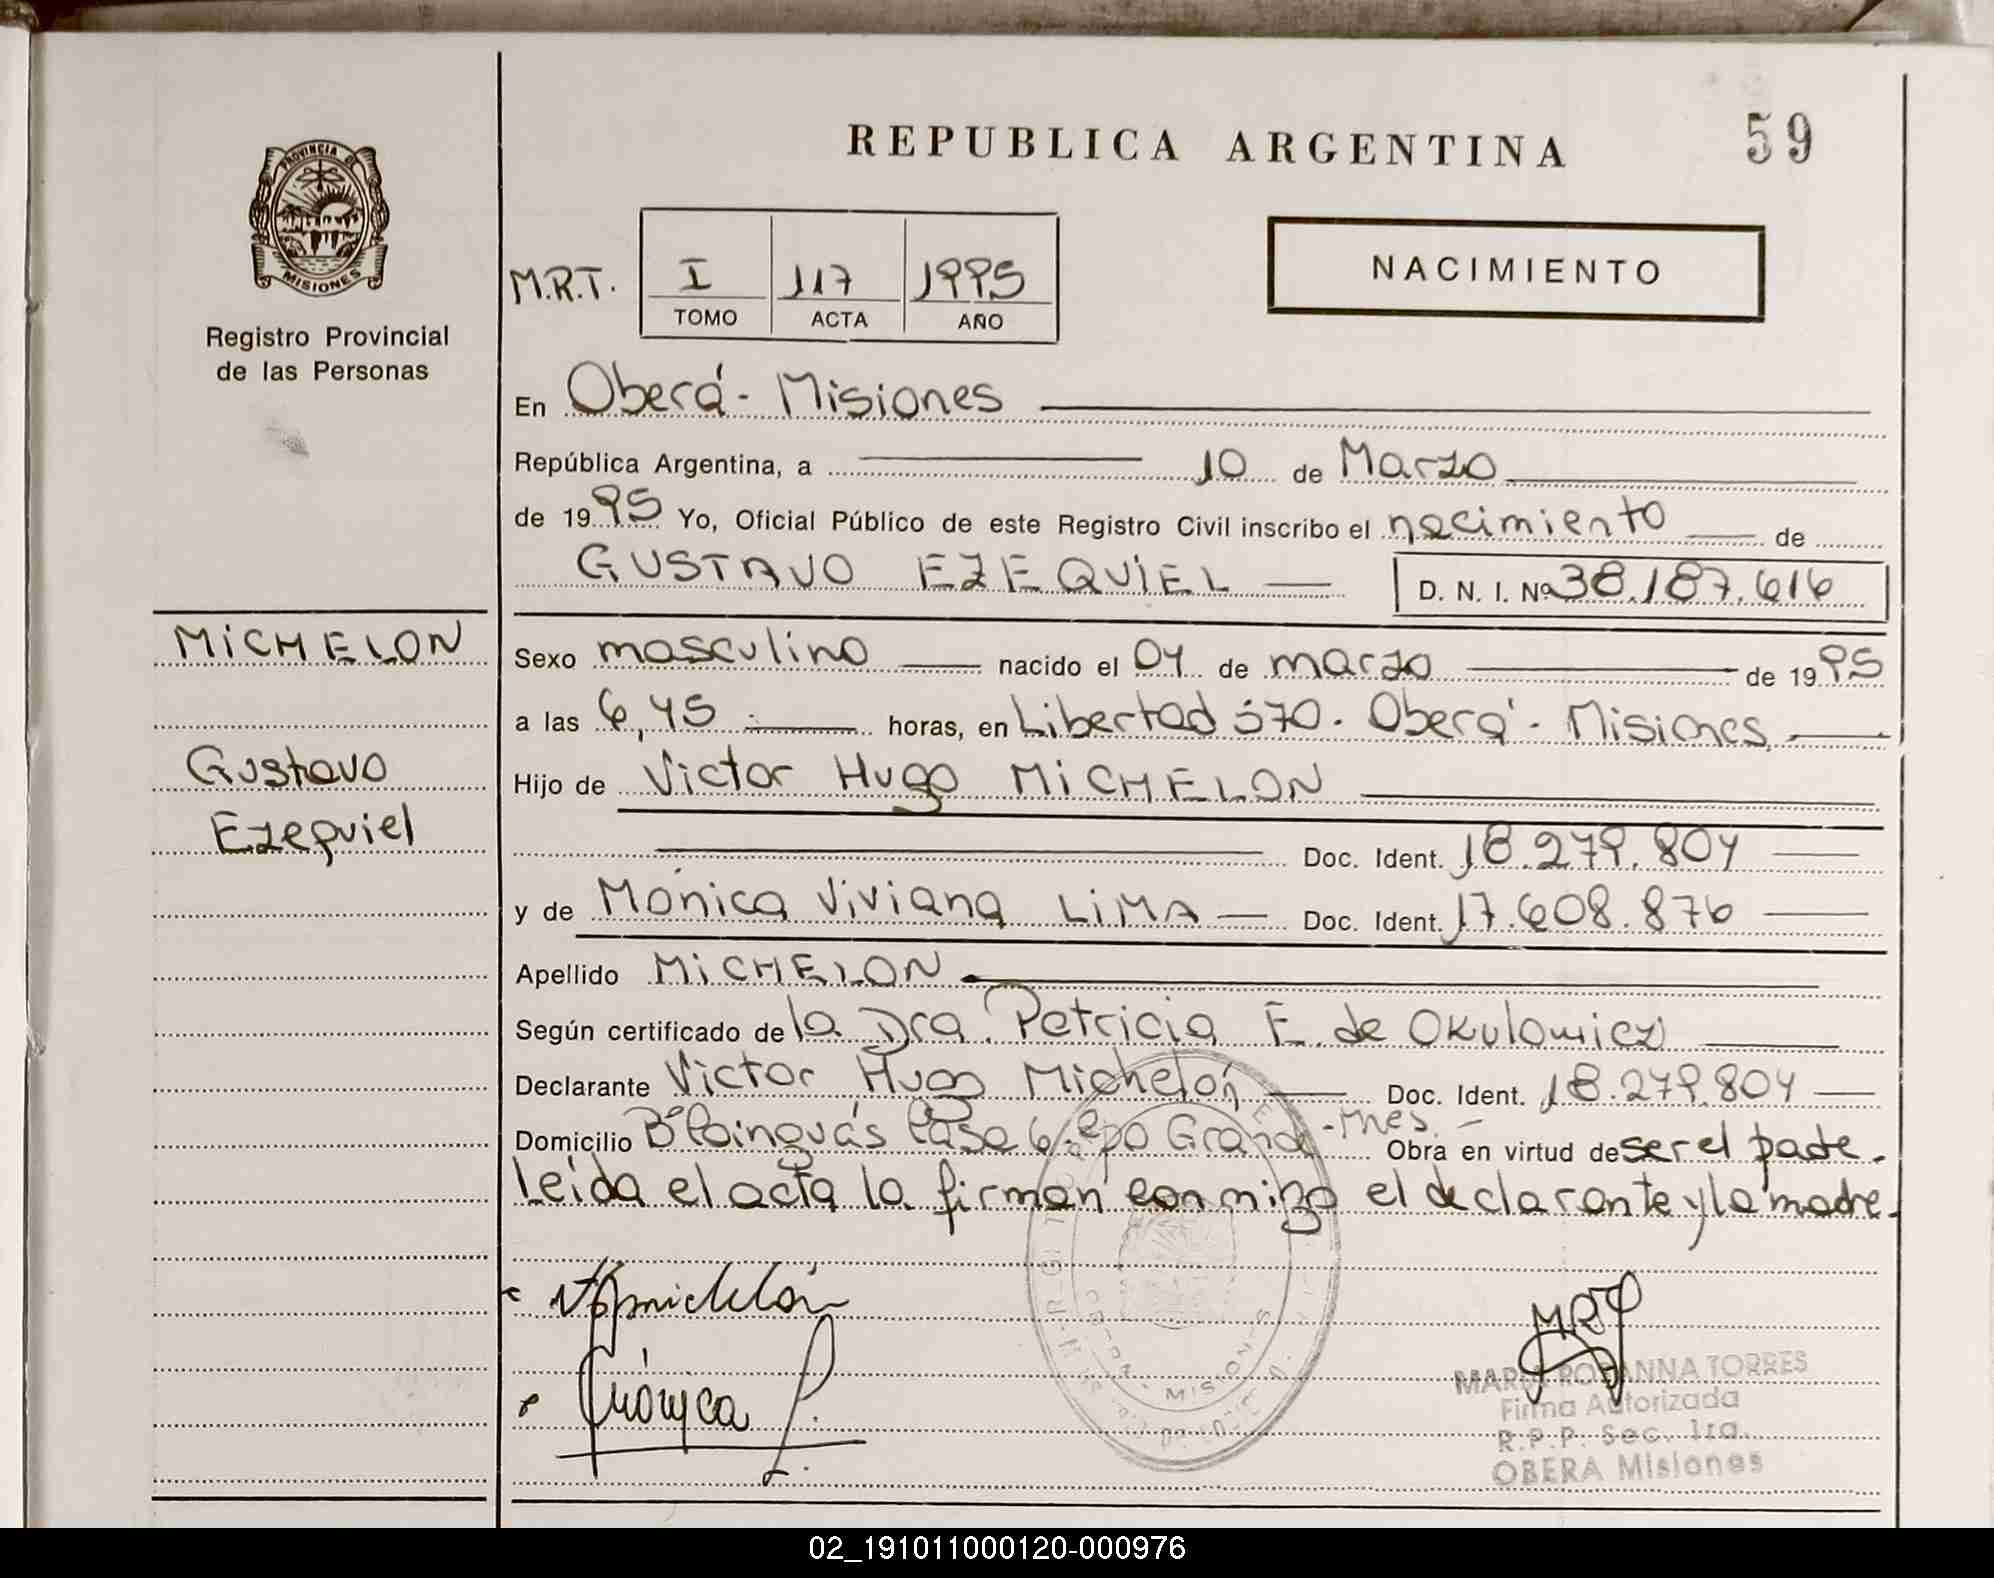 REPUBLICA ARGENTINA
59
PROVINCIA DE
MISIONES
Registro Provincial
de las Personas
M.R.T.
I 117 1995
TOMO ACTA AÑO
NACIMIENTO
En Oberá - Misiones
República Argentina, a 10 de Marzo
de 1995 Yo, Oficial Público de este Registro Civil inscribo el nacimiento de
GUSTAVO EZEQUIEL D. N. I. Nº 38.187.616
MICHELON
Gustavo
Ezequiel
Sexo masculino nacido el 04 de marzo de 1995
a las 6,45 horas, en Libertad 570. Oberá - Misiones
Hijo de Victor Hugo MICHELON
Doc. Ident. 18.279.804
y de Mónica Viviana LIMA Doc. Ident. 17.608.876
Apellido MICHELON
Según certificado de la Dra. Patricia E. de Okulowicz
Declarante Victor Hugo Michelón Doc. Ident. 18.279.804
Domicilio Bº Cainguás Casa 6 - Cpo Grande - Mnes. Obra en virtud de ser el padre.
Leída el acta la firman conmigo el declarante y la madre.
Mónica L.
MRT
MARIA ROSANNA TORRES
Firma Autorizada
R.P.P. Sec. 1ra.
OBERA Misiones
MISIONES
02_191011000120-000976